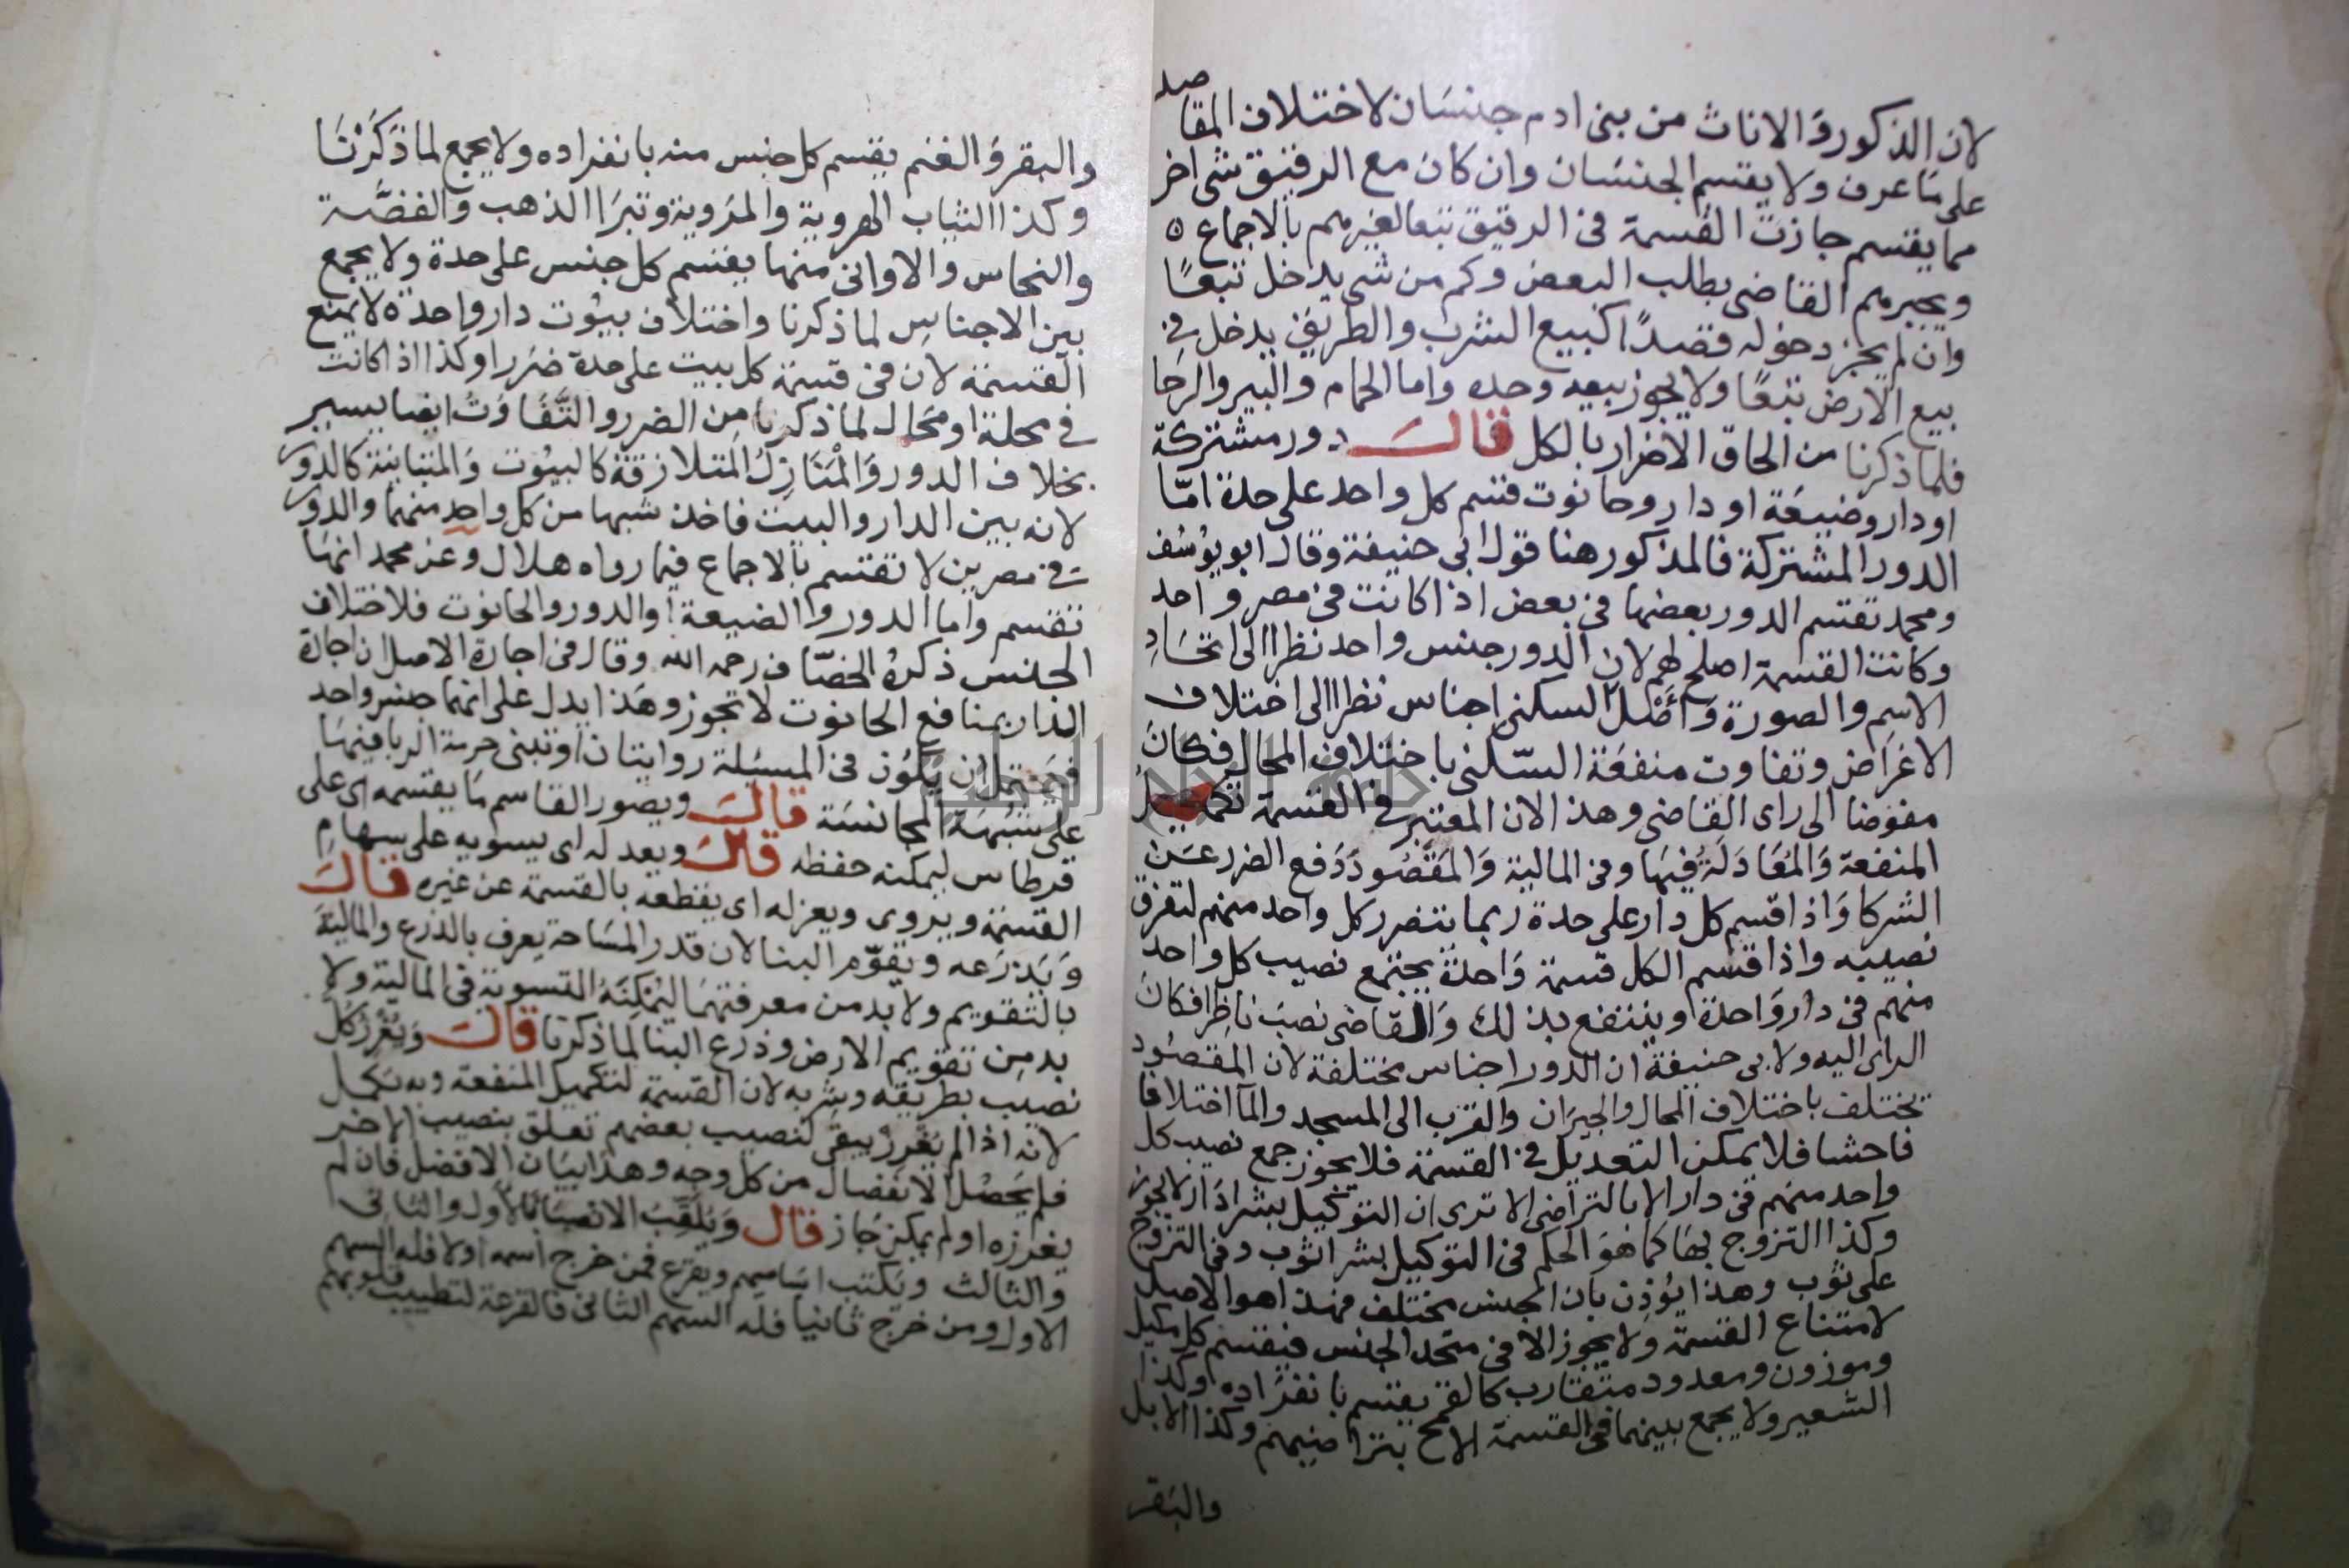 لان الذكور والاناث من بنى ادم جنسان لاختلاف المقاصد
على ما عرف ولا يقتسم الجنسان وان كان مع الرقيق شى اخر
مما يقتسم جازت القسمة فى الرقيق تبعا لغيرهم بالاجماع ه
ويجبرهم القاضى بطلب البعض وكم من شى يدخل تبعًا
وان لم يجز دخوله قصدًا كبيع الشرب والطريق يدخل فى
بيع الارض تبعًا ولا يجوز بيعه وحده واما الحمام والبير والرحا
فلما ذكرنا من الحاق الاضرار بالكل قالَ دور مشتركة
او دار وضيعَة او دار وحانوت قسم كل واحد على حدة امّا
الدور المشتركة فالمذكور هنا قول ابى حنيفة وقال ابو يوسُف
ومحمد تقتسم الدور بعضها فى بعض اذا كانت فى مصر واحد
وكانت القسمة اصلح لهم لان الدور جنس واحد نظرا الى اتحَادِ
الاسمِ والصورة وَاصْل السكنى اجناس نظرا الى اختلاف
الاغراض وتفاوت منفعَة السّكنى باختلاف المحال فكانَ
مفوضا الى راى القاضى وهذا لان المعتبر فى القسمة تكميلُ
المنفعة وَالمُعَادَلَةُ فيهَا وفى المالية وَالمَقصُود دَفع الضرر عَن
الشركا وَاذا قسم كل دار على حدة ربما يتضرر كل واحد منهم لتفرق
نصيبه واذا قسم الكل قسمة وَاحدة يجتمع نصيب كل واحد
منهم فى دار وَاحدة وينتفع بذلك وَالقاضى نصبَ ناظرا فكانَ
الراى اليه ولابى حنيفة ان الدور اجناس مختلفة لان المقصُود
يختلف باختلاف المحال والجيرَان والقرب الى المسجد والمآ اختلافا
فاحشا فلا يمكن التعديل فى القسمة فلا يجوز جمع نصيب كل
واحد منهم فى دار الا بالتراضى الا ترى ان التوكيل بشرا دَار لا يجوز
وكذا التزوج بهَا كما هوَ الحكم فى التوكيل بشرا ثوب وفى التزوج
على ثوب وهذا يُؤذِن بان الجنس مختلف فهذا هو الاصل
لامتناع القسمة ولا يجوز الا فى متحد الجنس فيقتسم كل مكيل
وموزون ومعدود متقارب كالقمح يقتسم بانفرَاده وكذا
الشعير ولا يجمع بينهما فى القسمة الا بتراضيهم وكذا الابل
والبقر
والبقر وَالغنم يقتسم كل جنس منه بانفراده ولا يجمع لما ذكَرْنَا
وكذا الثياب الهروية والمَروية وتبرَا الذهب والفضَّة
والنحاس والاوانى منها يقتسم كل جنس على حدة ولا يجمع
بين الاجناسِ لما ذكرنا واختلاف بيُوت دار واحدة لا يمنع
القسمة لان فى قسمة كل بيت على حدة ضَررا وكذا اذا كانت
فى محلة او محَال لما ذكرنا من الضرر والتَّفَاوُتُ ايضا يسير
بخلاف الدور وَالمَنَازِلُ المتلازقة كالبيُوت وَالمتباينة كالدور
لانه بين الدار والبيت فاخذ شبها من كل واحد منهما والدور
فى مصرين لا تقتسم بالاجماع فيما رواه هلال وعن محمد انهَا
تقتسم واما الدور والضيعة او الدور والحانوت فلاختلاف
الجنس ذكرهُ الخصّاف رحمه الله وقال فى اجارة الاصل ان اجارة
الدار بمنافع الحانوت لا تجوز وهَذا يدل على انهما جنس واحد
فيحتمل ان يَكوُن فى المسئلة روايتان او تبنى حرمة الربا فيهَا
على شبُهة المجانسَة قالَ ويصور القاسم مَا يقتسمه اى على
قرطاس ليمكنه حفظه قالَ ويعدله اى يسويه على سهام
القسمة ويروى ويعزله اى يقطعه بالقسمة عن غيره قالَ
وَيَذرَعه ويقوّم البنا لان قدر المسَاحة يعرف بالذرع والماليَة
بالتقويم ولا بد من معرفتهمَا ليُمْكِنَهُ التسوية فى المالية ولا
بد من تقويم الارض وذرع البنا لما ذكرنا قالَ وَيُفْرِزُ كلَّ
نصيب بطريقه وشربه لان القسمة لتكميل المنفعة وبه تكمل
لانه اذا لم يُفْرِزْ يبقى لنصيب بعضهم تعلق بنصيب الاخر
فلم يَحصُل الانفصال من كل وجه وهذا بيَان الافضل فان لم
يفرزه او لم يمكن جَاز قال وَيُلَقِّبُ الانصِبَا بالاول والثانى
والثالث ويَكتب اسَاميهم ويقرع فمن خرج اسمه اولا فله السهم
الاول ومن خرج ثانيا فله السهم الثانى فالقرعة لتطييب قلوبهم